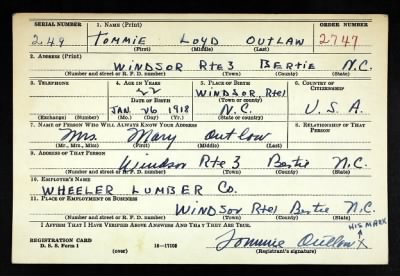 SERIAL NUMBER 1. NAME (Print) ORDER NUMBER
249 TOMMIE LOYD OUTLAW 2747
(First) (Middle) (Last)
2. ADDRESS (Print)
WINDSOR RTE 3 BERTIE N.C.
(Number and street or R. F. D. number) (Town) (County) (State)
3. TELEPHONE 4. AGE IN YEARS 5. PLACE OF BIRTH 6. COUNTRY OF CITIZENSHIP
22 WINDSOR Rte1
DATE OF BIRTH (Town or county)
JAN. 26 1918 N.C. U.S.A.
(Exchange) (Number) (Mo.) (Day) (Yr.) (State or country)
7. NAME OF PERSON WHO WILL ALWAYS KNOW YOUR ADDRESS 8. RELATIONSHIP OF THAT PERSON
Mrs. Mary Outlow
(Mr., Mrs., Miss) (First) (Middle) (Last)
9. ADDRESS OF THAT PERSON
Windsor Rte 3 Bertie N.C.
(Number and street or R. F. D. number) (Town) (County) (State)
10. EMPLOYER'S NAME
WHEELER LUMBER CO.
11. PLACE OF EMPLOYMENT OR BUSINESS
WINDSOR Rte1 Bertie N.C.
(Number and street or R. F. D. number) (Town) (County) (State)
I AFFIRM THAT I HAVE VERIFIED ABOVE ANSWERS AND THAT THEY ARE TRUE.
HIS MARK
REGISTRATION CARD Tommie Outlow X
D. S. S. Form 1 (over) 16—17105 (Registrant's signature)